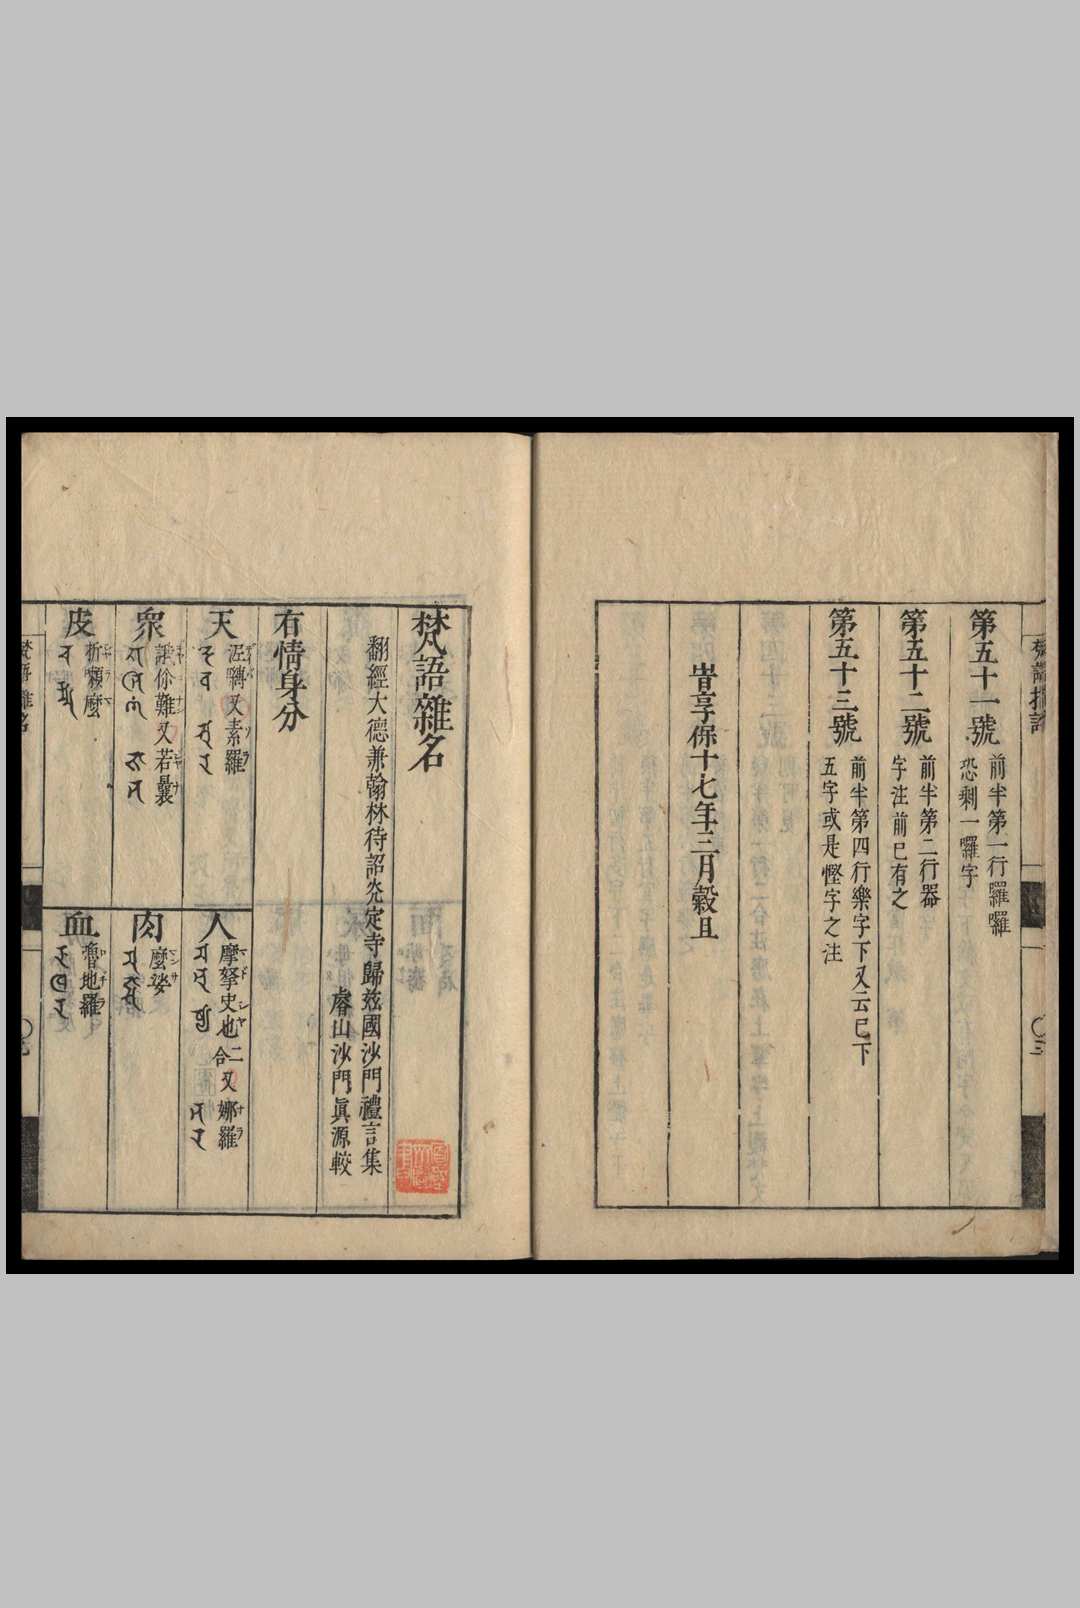 第五十一號
前半第一行羅囉
恐剩一囉字
第五十二號
前半第二行器
字注前已有之
第五十三號
前半第四行樂字下又云已下
五字或是慳字之注
旹享保十七年三月穀旦
梵語雜名
翻經大德兼翰林待詔光定寺歸茲國沙門禮言集
睿山沙門眞源較
有情身分
天
泥嚩又素羅
デバ ソラ
देव सुर
人
摩拏史也二合又娜羅
マドシヤ ナラ
衆
若曩
ジヤナ
जन
肉
麼娑
マンサ
皮
折轢麼
シヤラマ
血
嚕地羅
ロチラ
梵語雜名